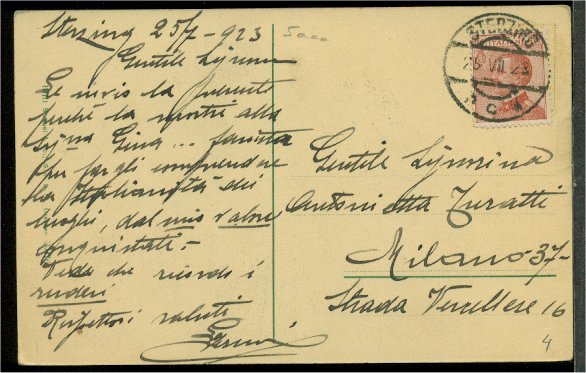 Sterzing 25/7-923
5000
Gentile Signora
Le invio la presente
perchè la mostri alla
Sig.na Gina ... 
per fargli comprendere
la italianità dei
luoghi, dal mio valore
conquistati. -
Vede che ricordi i
ruderi
Rispettosi saluti
STERZING
26.VII.23
Gentile Signorina
Antonietta Turatti
Milano-37-
Strada Vercellese 16
4